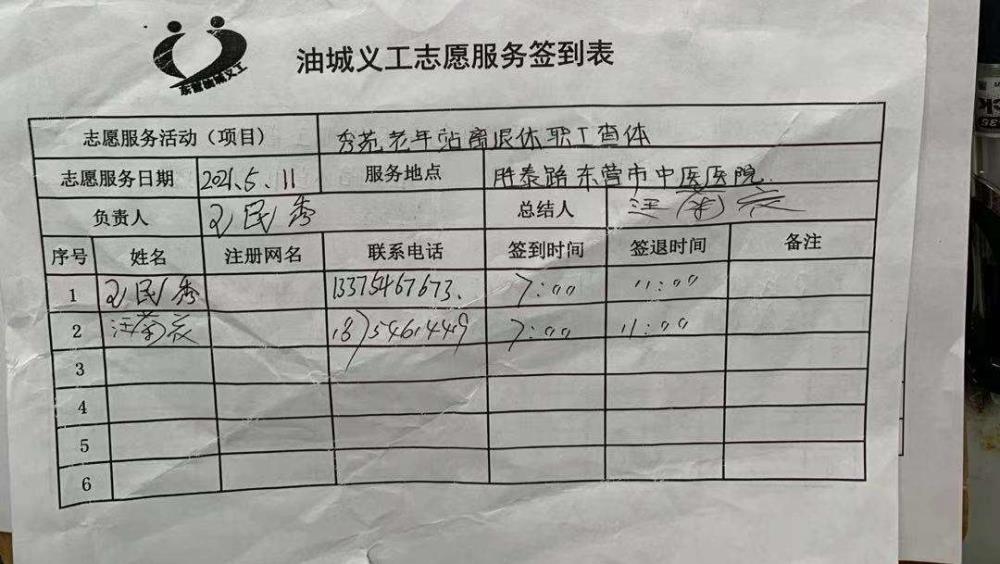 东营油城义工
油城义工志愿服务签到表
志愿服务活动（项目） 秀苑老年站离退休职工查体
志愿服务日期 2021.5.11 服务地点 胜泰路东营市中医医院
负责人 民秀 总结人 汪菊
序号 姓名 注册网名 联系电话 签到时间 签退时间 备注
1 民秀 13375467673. 7:00 11:00
2 汪菊 18754614449 7:00 11:00
3
4
5
6